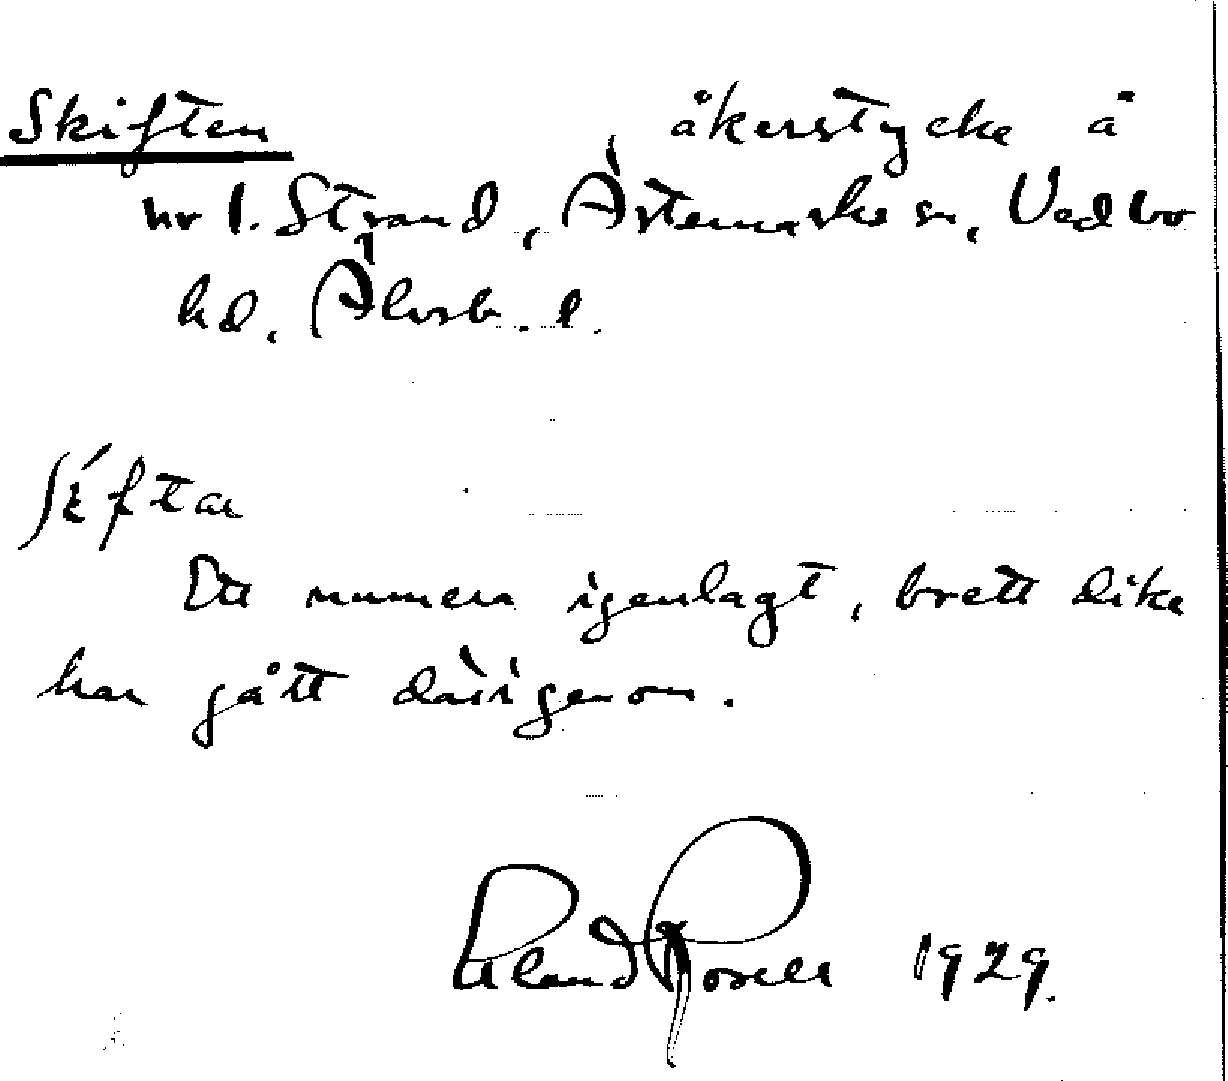 Skiften, åkerstycke å
nr 1. Strand, Ärtemarks sn, Vedbo
hd. Älvsb. l.
Ett numera igenlagt, brett dike
har gått därigenom.
Erland Rosell 1929.